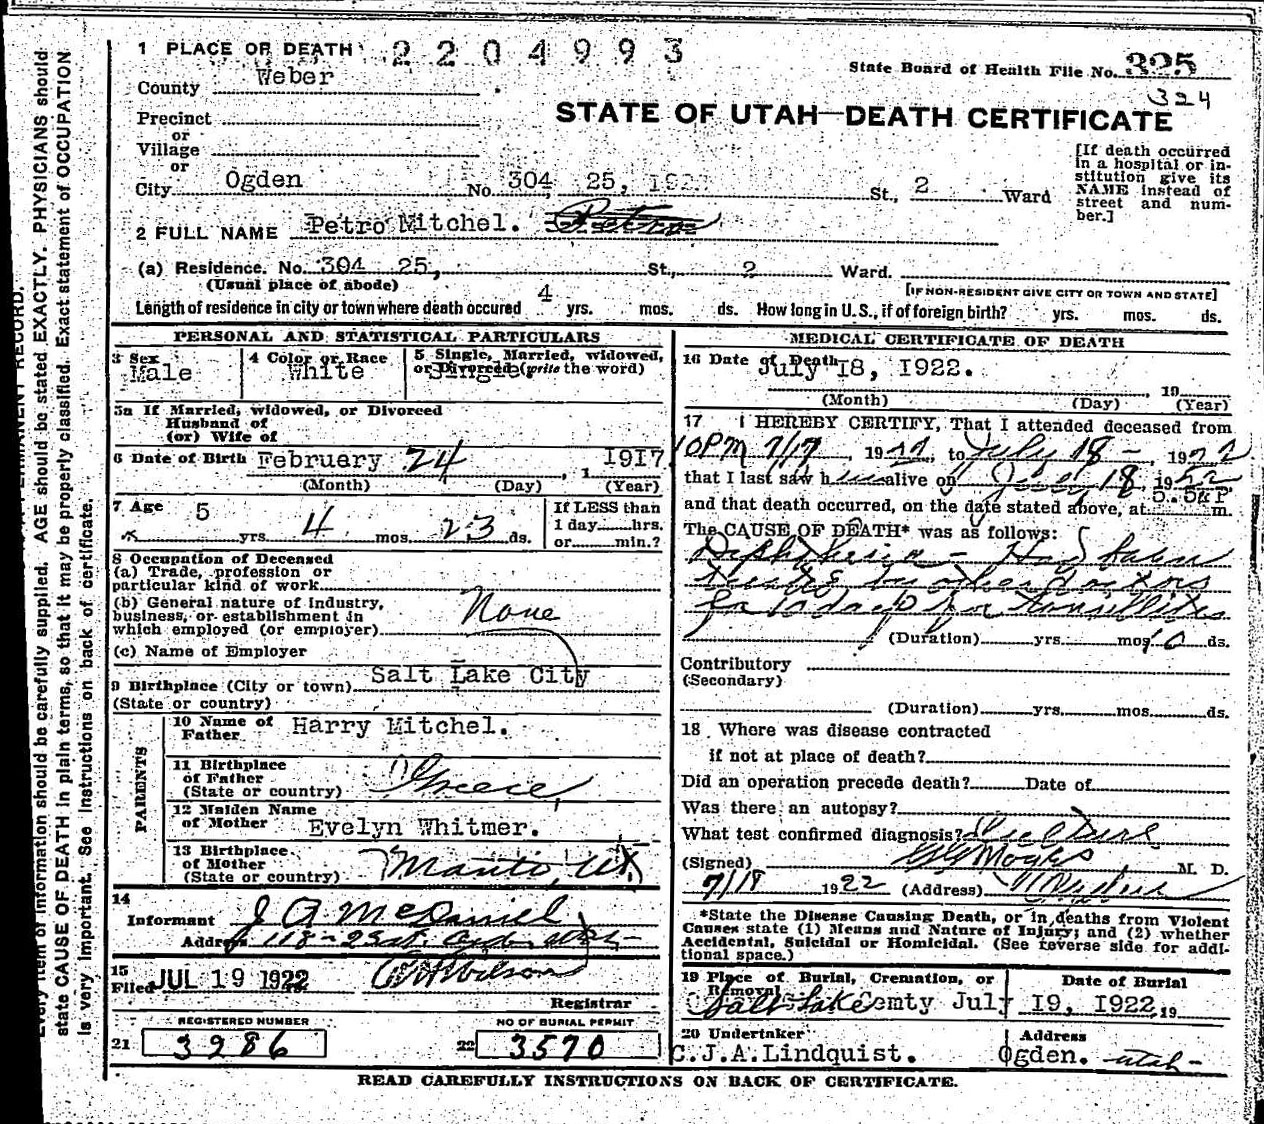 1 PLACE OF DEATH 2204993
State Board of Health File No. 325
County Weber
324
STATE OF UTAH—DEATH CERTIFICATE
Precinct
or
Village
or
City Ogden No. 304 25, St., 2 Ward
[If death occurred in a hospital or institution give its NAME instead of street and number.]
2 FULL NAME Petro Mitchel.
(a) Residence. No. 304 25, St., 2 Ward.
(Usual place of abode)
[IF NON-RESIDENT GIVE CITY OR TOWN AND STATE]
Length of residence in city or town where death occured 4 yrs. mos. ds. How long in U. S., if of foreign birth? yrs. mos. ds.
PERSONAL AND STATISTICAL PARTICULARS
3 Sex
Male
4 Color or Race
White
5 Single, Married, widowed,
or Divorced (write the word)
Single.
5a If Married, widowed, or Divorced
Husband of
(or) Wife of
6 Date of Birth February 24, 1917
(Month) (Day) (Year)
7 Age 5 yrs. 4 mos. 23 ds.
If LESS than
1 day hrs.
or min.?
8 Occupation of Deceased
(a) Trade, profession or
particular kind of work
(b) General nature of Industry,
business, or establishment in
which employed (or employer) None
(c) Name of Employer
9 Birthplace (City or town) Salt Lake City
(State or country)
PARENTS
10 Name of
Father Harry Mitchel.
11 Birthplace
of Father
(State or country) Greece,
12 Maiden Name
of Mother Evelyn Whitmer.
13 Birthplace
of Mother
(State or country) Manti, Ut
14
Informant J A McDaniel
Address 118-25 st. Ogden Utah
15
Filed JUL 19 1922 Wilson
Registrar
REGISTERED NUMBER
21 3986
NO OF BURIAL PERMIT
22 3570
MEDICAL CERTIFICATE OF DEATH
16 Date of Death July 18, 1922.
, 19
(Month) (Day) (Year)
17 I HEREBY CERTIFY, That I attended deceased from
10PM 7/17, 1922, to July 18 -, 1922
that I last saw h alive on July 18, 1922
and that death occurred, on the date stated above, at 5.50 P m.
The CAUSE OF DEATH* was as follows:
Diphtheria - Had been
treated by other doctors
for 10 days for tonsillitis
(Duration) yrs. mos. 10 ds.
Contributory
(Secondary)
(Duration) yrs. mos. ds.
18 Where was disease contracted
if not at place of death?
Did an operation precede death? Date of
Was there an autopsy?
What test confirmed diagnosis? Culture
(Signed) M. D.
7/18 1922 (Address) Ogden
*State the Disease Causing Death, or in deaths from Violent
Causes state (1) Means and Nature of Injury; and (2) whether
Accidental, Suicidal or Homicidal. (See reverse side for addi-
tional space.)
19 Place of Burial, Cremation, or
Removal
Salt Lake
Date of Burial
July 19, 1922, 19
20 Undertaker
C.J.A. Lindquist.
Address
Ogden. Utah -
READ CAREFULLY INSTRUCTIONS ON BACK OF CERTIFICATE.
PERMANENT RECORD.
Every item of information should be carefully supplied. AGE should be stated EXACTLY. PHYSICIANS should
state CAUSE OF DEATH in plain terms, so that it may be properly classified. Exact statement of OCCUPATION
is very important. See instructions on back of certificate.